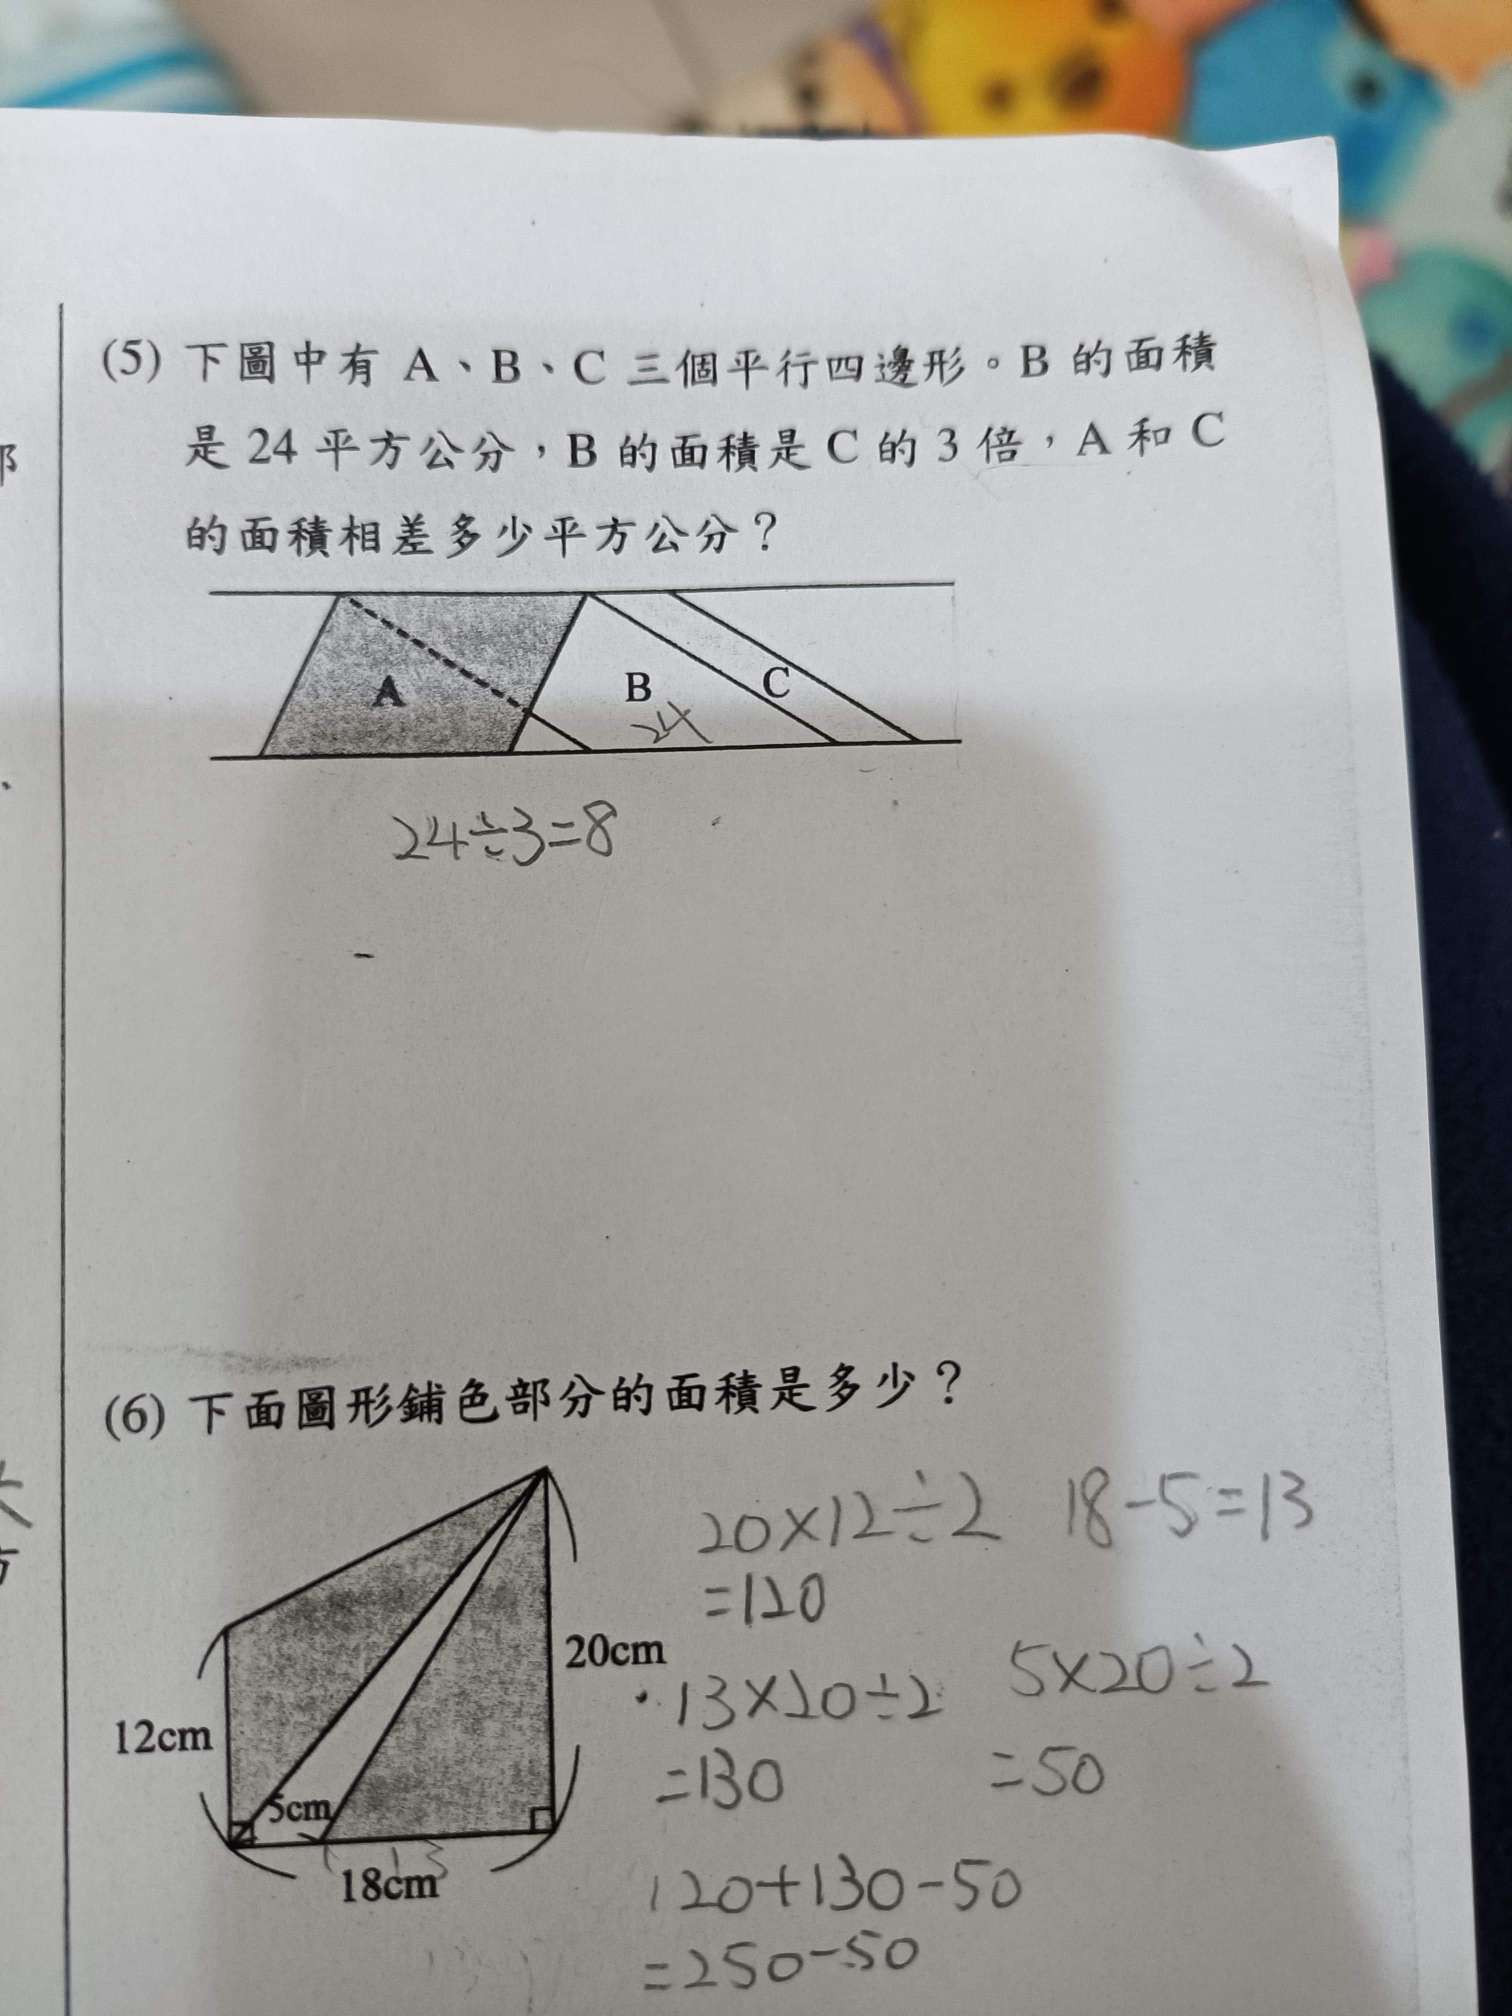 (5) 下圖中有 A、B、C 三個平行四邊形。B 的面積
是 24 平方公分，B 的面積是 C 的 3 倍，A 和 C
的面積相差多少平方公分？
A
B
C
24
24÷3=8
(6) 下面圖形鋪色部分的面積是多少？
20×12÷2
=120
18-5=13
20cm
13×20÷2
=130
5×20÷2
=50
12cm
5cm
13
18cm
120+130-50
=250-50